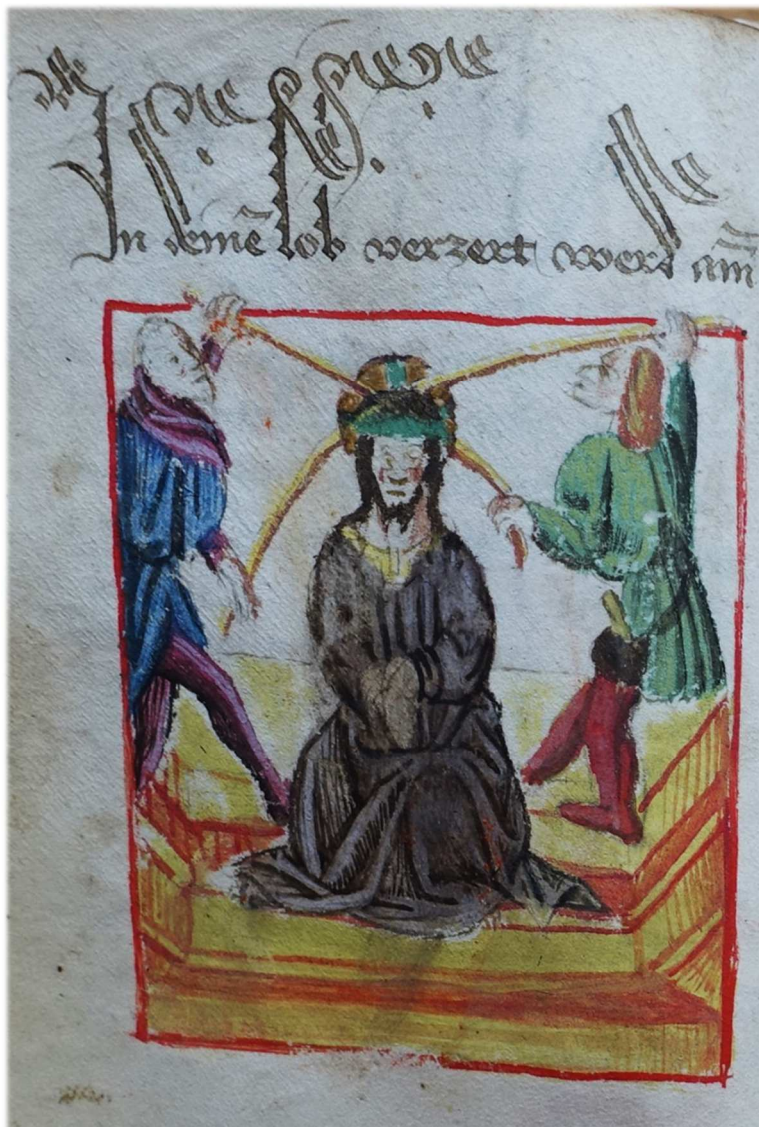 In deinē lob verzert werd am̄